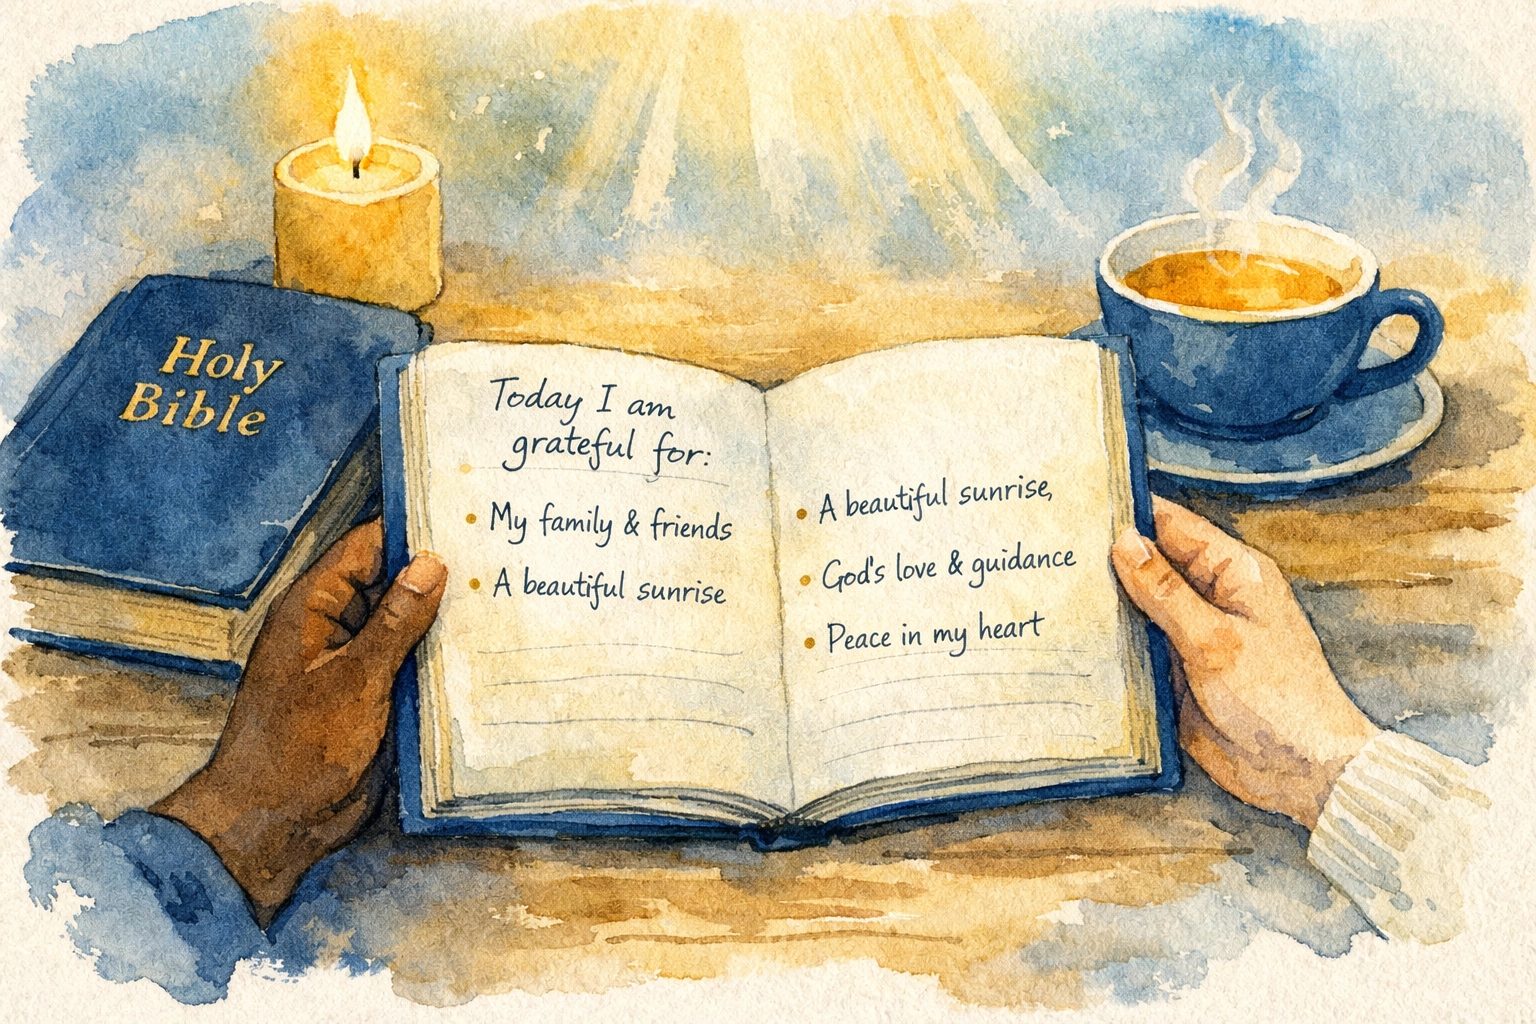 Holy
Bible
Today I am
grateful for:
• My family & friends
• A beautiful sunrise
• A beautiful sunrise,
• God's love & guidance
• Peace in my heart